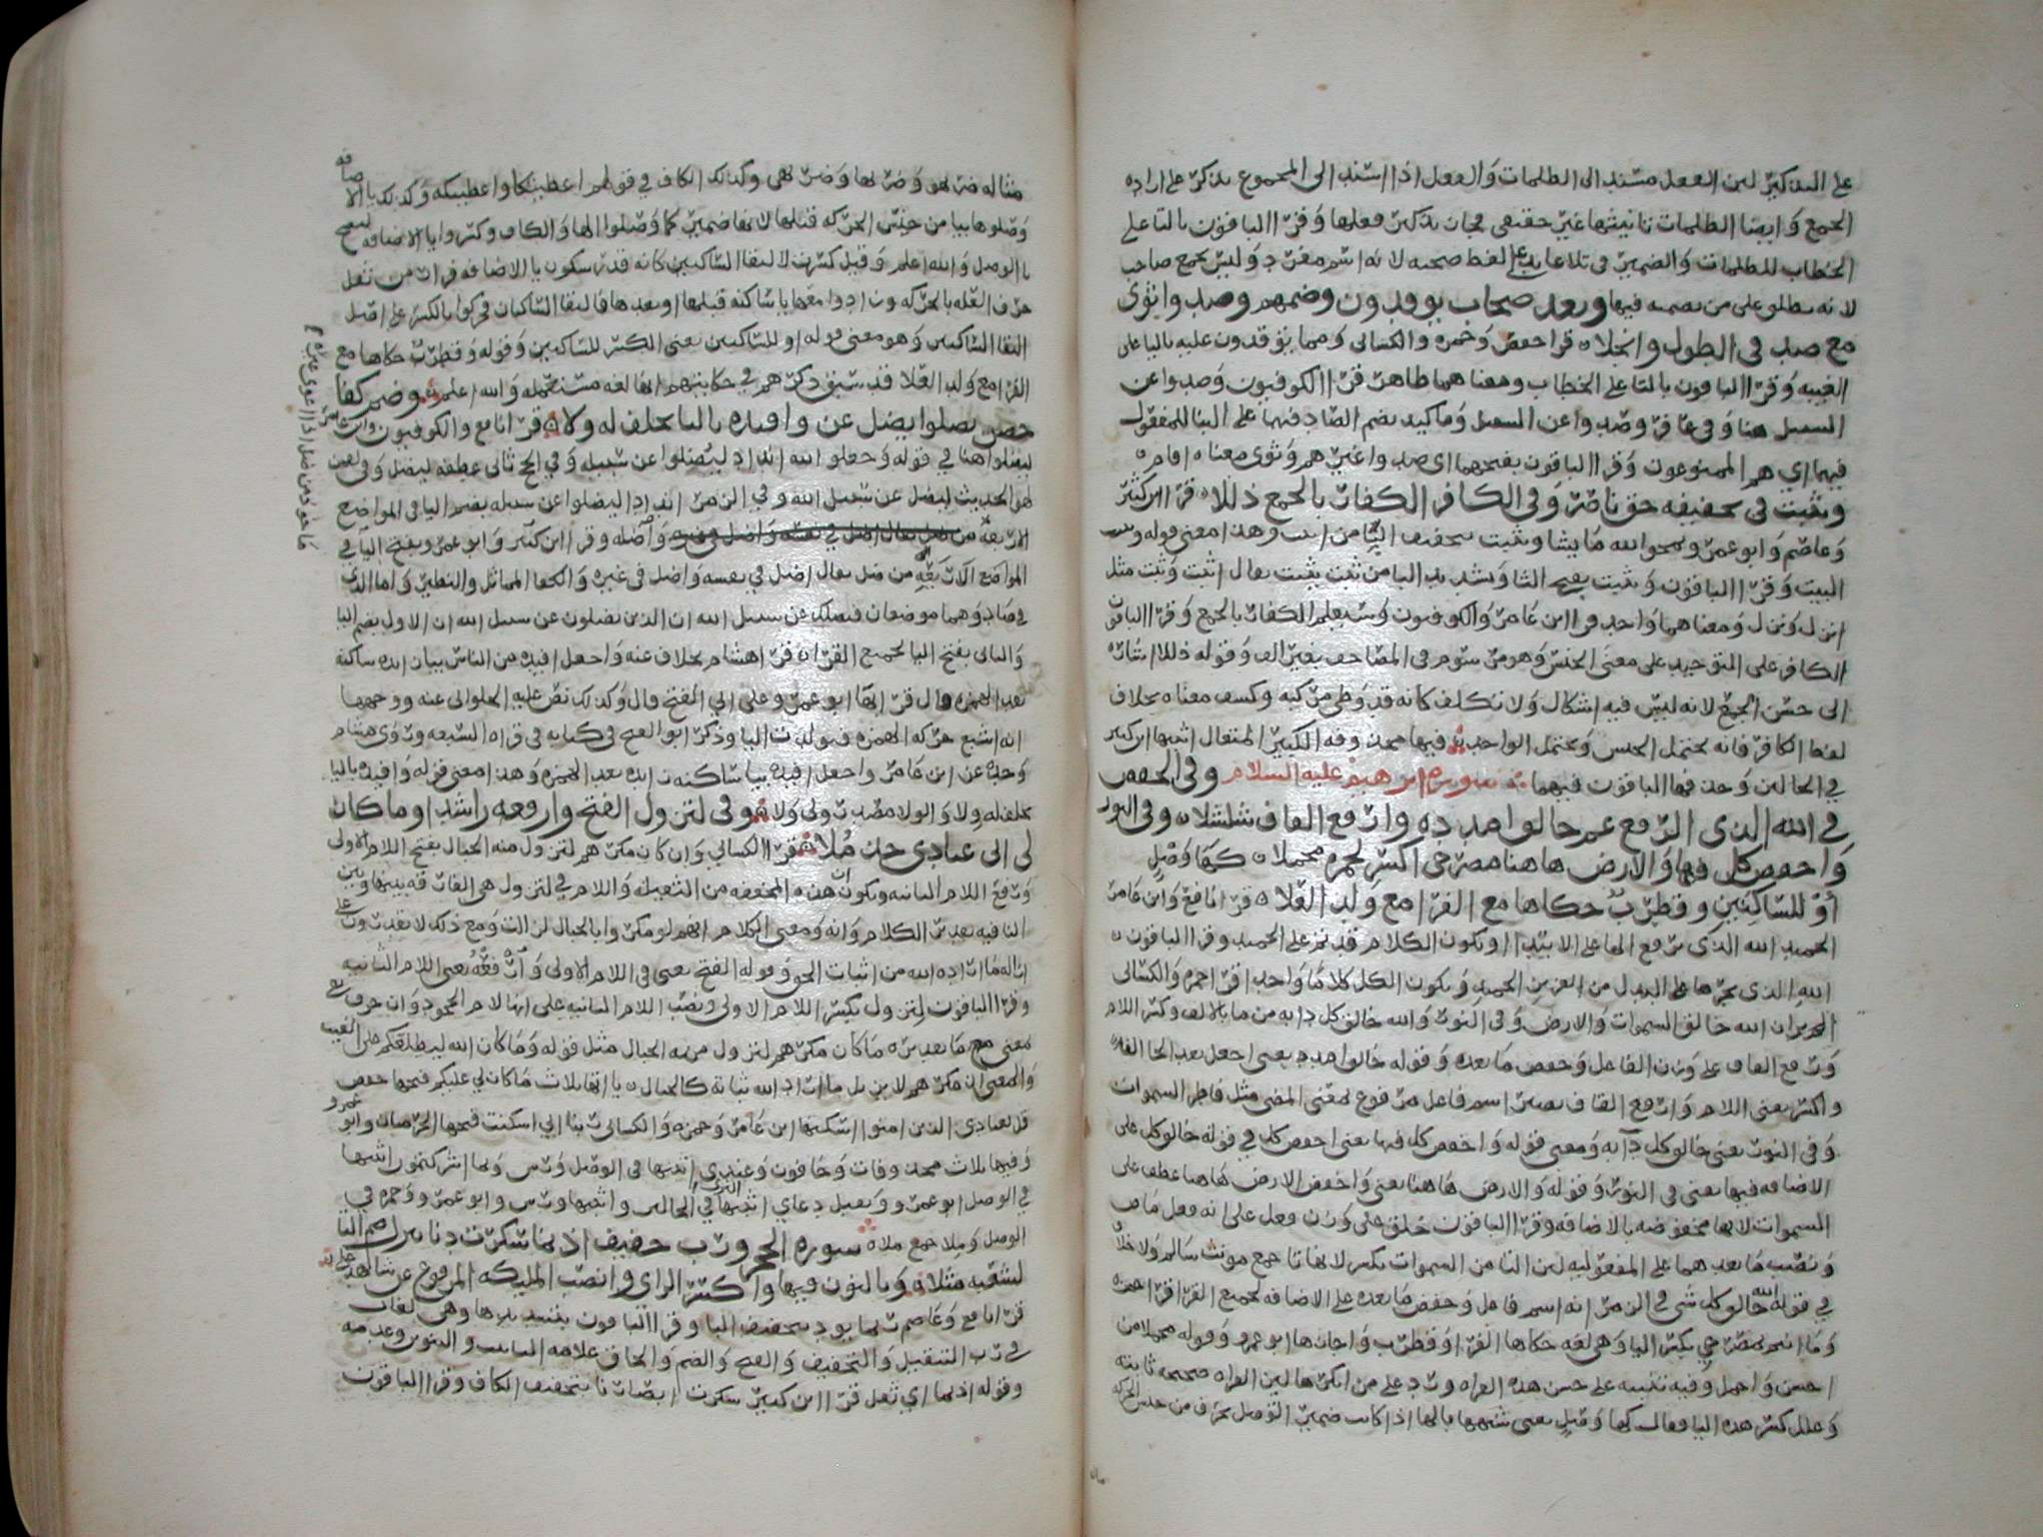 على التذكير لان الفعل مسند الى الظلمات والفعل اذا اسند الى المجموع يذكر على اراده
الجمع وايضا الظلمات تانيثها غير حقيقي فجاز تذكير فعلها وقرا الباقون بالتا على
لانه يطلق على من يصحبه فيها وبعد صحاب يوقدون وضمهم وصدوا ثوى
مع صد في الطول وانجلا قرا حفص وحمزه والكسائي ومما يوقدون عليه باليا على
الغيبه وقرا الباقون بالتا على الخطاب ومعناهما ظاهر قرا الكوفيون وصدوا عن
السبيل هنا وفي غافر وصدوا عن السبيل وما كيد بضم الصاد فيهما على البنا للمفعول
فيهما اي هم الممنوعون وقرا الباقون بفتحهما اي صدوا غيرهم وثوى معناه اقام
ويثبت في تخفيفه حق ناصر وفي الكافر الكفار بالجمع ذللا قرا ابن كثير
وعاصم وابو عمرو يمحوا الله ما يشا ويثبت بتخفيف البا من اثبت وهذا معنى قوله
البيت وقرا الباقون ويثبت بفتح الثا وتشديد البا من ثبت يثبت يقال اثبت وثبت مثل
انزل ونزل ومعناهما واحد قرا ابن عامر والكوفيون وسيعلم الكفار بالجمع وقرا الباقون
الكافر على التوحيد على معنى الجنس وهو مرسوم في المصاحف بغير الف وقوله ذللا اشاره
الى حسن الجمع لانه ليس فيه اشكال ولا تكلف كانه قد وطى مركبه وكشف معناه بخلاف
لفظ الكافر فانه يحتمل الجنس ويحتمل الواحد فيها محذوفه الكبير المتعال اثبتها ابن كثير
في الحالين وحذفها الباقون فيهما سوره ابرهيم عليه السلام وفي الخفض
في الله الذي الرفع عم خالق امدده وارفع القاف شلشلا وفي النور
واخفض كل فيها والارض هاهنا مصرخي اكسر لحمزه مجملا كها وصل
او للساكنين وقطرب حكاها مع الفرا مع ولد العلا قرا نافع وابن عامر
الحميد الله الذي برفع الها على الابتدا ويكون الكلام قد تم على الحميد وقرا الباقون
الله الذي بجرها على البدل من العزيز الحميد ويكون الكل كلاما واحدا قرا حمزه والكسائي
الم تر ان الله خالق السموات والارض وفي النور والله خالق كل دابه من ما بالالف وكسر اللام
ورفع القاف على وزن الفاعل وخفض ما بعده وقوله خالق امدد يعني اجعل بعد الخا الفا
واكسر يعني اللام وارفع القاف يصير اسم فاعل مرفوع لمعنى المضي مثل فاطر السموات
وفي النور يعني خالق كل دابه ومعنى قوله واخفض كل فيها يعني اخفض كل في قوله خالق كل على
الاضافه فيها يعني في النور وقوله والارض هاهنا يعني واخفض الارض هاهنا عطف على
السموات لانها مخفوضه بالاضافه وقرا الباقون خلق على وزن فعل على انه فعل ماض
ونصب ما بعدهما على المفعوليه لان التا من السموات تكسر لانها تا جمع مونث سالم ولا خلاف
في قوله الله خالق كل شي في الزمر انه اسم فاعل وخفض ما بعده على الاضافه لجميع القرا قرا حمزه
وما انتم بمصرخي بكسر اليا وهي لغه حكاها الفرا وقطرب واجازها ابو عمرو وقوله مجملا من
احسن واجمل وفيه تنبيه على حسن هذه القراه ورد على من انكرها لان القراه صحيحه ثابته
وعلل كسر هذه اليا فقال كها وصل يعني شبهها بالها اذا كانت ضمير
مثاله ضربهو وضربها وضربهي وكذلك الكاف في قولهم اعطيتكا واعطيتكه وكذلك يا الاضافه
وصلوها بيا من جنس الحركه قبلها لانها ضمير كما وصلوا الها والكاف وكسروا يا الاضافه
بالوصل والله اعلم وقيل كسرت لالتقا الساكنين كانه قدر سكون يا الاضافه فرارا من ثقل
حرف العله بالحركه
التقا الساكنين وهو معنى قوله او للساكنين يعني الكسر للساكنين وقوله وقطرب حكاها مع
الفرا مع ولد العلا قد سبق ذكرهم في حكايتهم انها لغه مستعمله والله اعلم وضم كفا
حصن يضلوا يضل عن وافيده باليا بخلف له ولا قرا نافع والكوفيون وابن عامر
ليضلوا هنا في قوله وجعلوا لله اندادا ليضلوا عن سبيله وفي الحج ثاني عطفه ليضل وفي لقمن
لهو الحديث ليضل عن سبيل الله وفي الزمر اندادا ليضلوا عن سبيله بضم اليا في المواضع
الاربعه وقرا ابن كثير وابو عمرو بفتح اليا في
المواضع الاربعه من ضل يقال ضل في نفسه واضل في غيره
في صاد وهما موضعان فيضلك عن سبيل الله ان الذين يضلون عن سبيل الله ان الاول بضم اليا
والثاني بفتح اليا لجميع القرا قرا هشام بخلاف عنه واجعل افيده من الناس بيا زايده ساكنه
بعد الهمزه قال قرا بها ابو عمرو على ابي الفتح قال وكذلك نص عليه الحلواني عنه ووجهها
انه اشبع حركه الهمزه فتولدت اليا وذكر ابو الفتح في كتابه في قراه السبعه وروى هشام
وحده عن ابن عامر واجعل افيده بيا ساكنه زايده بعد الهمزه وهذا معنى قوله وافيده باليا
بخلف له ولا والولا مصدر ولى ولا وفي لتزول الفتح وارفعه راشدا وما كان
لي اني عبادي خذ ملا قرا الكسائي وان كان مكرهم لتزول منه الجبال بفتح اللام الاولى
ورفع اللام الثانيه وتكون ان هذه المخففه من الثقيله واللام في لتزول هي الفارقه بينها وبين
النافيه تقدير الكلام وانه ومعنى الكلام انهم لو مكروا بالجبال لزالت ومع ذلك لا يقدرون على
ازاله ما اراده الله من اثبات الحق وقوله الفتح يعني في اللام الاولى وارفعه يعني اللام الثانيه
وقرا الباقون لتزول بكسر اللام الاولى ونصب اللام الثانيه على انها لام الجحود وان حرف نفي
معنى ما تقديره ما كان مكرهم لتزول منه الجبال مثل قوله وما كان الله ليطلعكم على الغيب
والمعنى ان مكرهم لا يزيل ما اراد الله ثباته كالجبال ياآتها ثلاث ما كان لي عليكم فتحها حفص
قل لعبادي الذين امنوا اسكنها ابن عامر وحمزه والكسائي ربنا اني اسكنت فتحها الحرميان وابو عمرو
وفيها ثلاث محذوفات
في الوصل ابو عمرو وتقبل دعاي اثبتها في الحالين البزي واثبتها ورش وابو عمرو وحمزه في
الوصل وملا جمع ملاه سوره الحجر ورب خفيف اذ نما سكرت دنا تنزل ضم التا
لشعبه مثلا وبالنون فيها واكسر الزاي وانصب المليكه المرفوع عن شايد علا
قرا نافع وعاصم ربما يود بتخفيف البا وقرا الباقون بتشديدها وهي لغات
في رب التثقيل والتخفيف والفتح والضم والحاق علامه التانيث والتنوين وعدمه
وقوله اذ نما اي نقل قرا ابن كثير سكرت ابصارنا بتخفيف الكاف وقرا الباقون